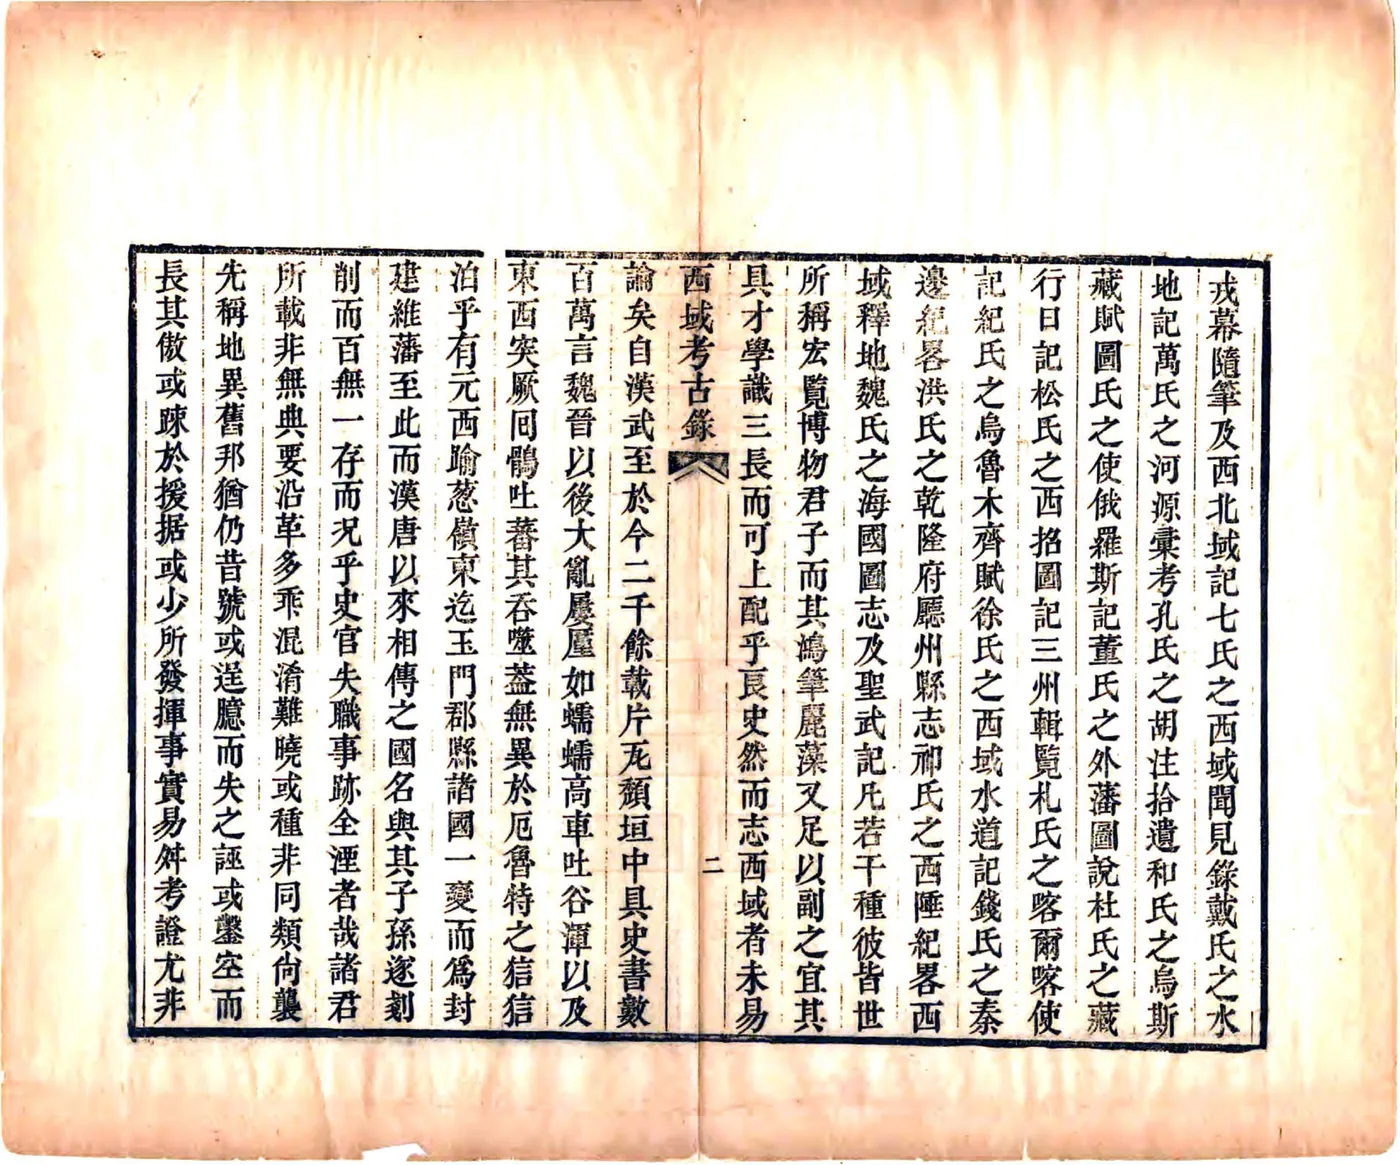 戎幕隨筆及西北域記七氏之西域聞見錄戴氏之水
地記萬氏之河源彚考孔氏之胡注拾遺和氏之烏斯
藏賦圖氏之使俄羅斯記董氏之外藩圖說杜氏之藏
行日記松氏之西招圖記三州輯覧札氏之喀爾喀使
記紀氏之烏魯木齊賦徐氏之西域水道記錢氏之秦
邊紀畧洪氏之乾隆府廳州縣志祁氏之西陲紀畧西
域釋地魏氏之海國圖志及聖武記凡若干種彼皆世
所稱宏覧博物君子而其鴻筆麗藻又足以副之宜其
具才學識三長而可上配乎良史然而志西域者未易
西域考古錄
二
論矣自漢武至於今二千餘載片瓦頽垣中具史書數
百萬言魏晉以後大亂屢屋如蠕蠕高車吐谷渾以及
東西突厥回鶻吐蕃其吞噬葢無異於厄魯特之狺狺
洎乎有元西踰葱嶺東迄玉門郡縣諸國一變而爲封
建維藩至此而漢唐以來相傳之國名與其子孫逐剗
削而百無一存而况乎史官失職事跡全湮者哉諸君
所載非無典要沿革多乖混淆難曉或種非同類尙襲
先稱地異舊邦猶仍昔號或逞臆而失之誣或鑿空而
長其傲或疎於援据或少所發揮事實易舛考證尤非